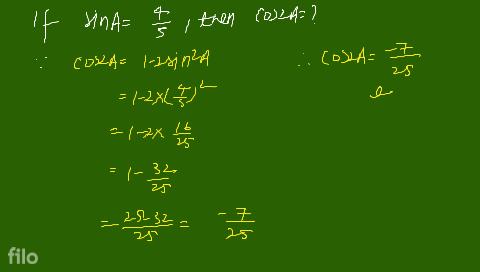 If sinA = 4/5, then cos2A = ?
∵ cos2A = 1-2sin²A
= 1-2×(4/5)²
= 1-2× 16/25
= 1- 32/25
= 25-32/25 = -7/25
∴ cos2A = -7/25
filo